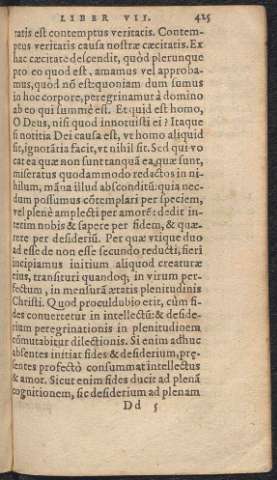 LIBER VII. 425
tatis est contemptus veritatis. Contem-
ptus veritatis causa nostræ cæcitatis. Ex
hac cæcitate descendit, quòd plerunque
pro eo quod est, amamus vel approba-
mus, quod nō est: quoniam dum sumus
in hoc corpore, peregrinamur à domino
ab eo qui summè est. Et quid est homo,
O Deus, nisi quod innotuisti ei? Itaque
si notitia Dei causa est, vt homo aliquid
sit, ignorātia facit, vt nihil sit. Sed qui vo
cat ea quæ non sunt tanquā ea quæ sunt,
miseratus quodammodo redactos in ni-
hilum, māna illud abscōditū: quia nec-
dum possumus cōtemplari per speciem,
vel plenè amplecti per amorē: dedit in-
terim nobis & sapere per fidem, & quæ-
rere per desideriū. Per quæ vtique duo
ad esse de non esse secundo reducti, fieri
incipiamus initium aliquod creaturæ
eius, transituri quandoq; in virum per-
fectum, in mensurā ætatis plenitudinis
Christi. Quod proculdubio erit, cùm fi-
des conuertetur in intellectū: & deside-
rium peregrinationis in plenitudinem
cōmutabitur dilectionis. Si enim adhuc
absentes initiat fides & desiderium, præ-
sentes profectò consummat intellectus
& amor. Sicut enim fides ducit ad plenā
cognitionem, sic desiderium ad plenam
Dd 5